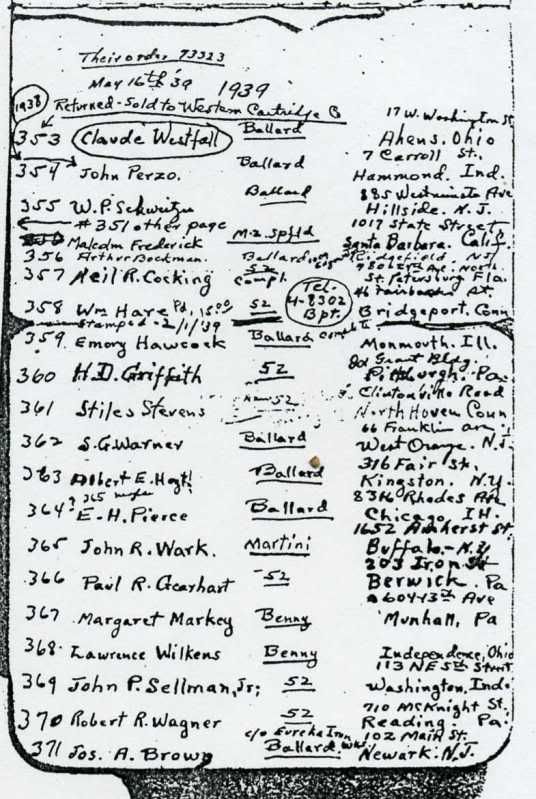 Their order 73323
May 16th '39 1939
1938 Returned - Sold to Western Cartridge Co
17 W. Washington St
353 Claude Westfall Ballard Athens, Ohio
7 Carroll St.
354 John Perzo. Ballard Hammond, Ind.
885 Westminster Ave
355 W.P. Schweitzer Ballard Hillside. N.J.
← #351 other page 1017 State Street,
Malcolm Frederick M-2 Spfld Santa Barbara. Calif.
356 Arthur Bockman. Ballard Ridgefield NJ
North.
357 Neil R. Cocking 52 Compt St Petersburg Fla.
46 Fairbanks St.
358 Wm Hare Pd. 15.00 52 Tel. 4-8302 Bpt. Bridgeport. Conn
Stamped - 2/1/39
359. Emory Hawcock Ballard Complete Monmouth. Ill.
Grant Bldg.
360 H.D. Griffith 52 Pittsburgh. Pa.
Clintonville Road
361 Stiles Stevens 52 North Haven Conn
66 Franklin Av
362 S.G. Warner Ballard West Orange. N.J.
316 Fair St.
363 Albert E. Hoyt! Ballard Kingston. N.Y.
? 365 maybe Rhodes Ave
364 E-H. Pierce Ballard Chicago, Ill.
1652 Amherst St.
365 John R. Wark. Martini Buffalo - N.Y
203 Iron St
366 Paul R. Gearhart 52 Berwick. Pa
13th Ave
367 Margaret Markey Benny Munhall, Pa
368. Lawrence Wilkens Benny Independence, Ohio
113 NE 5th Street
369 John P. Sellman, Jr; 52 Washington, Ind.
710 McKnight St.
370 Robert R. Wagner 52 Reading. Pa.
c/o Eureka Iron 102 Main St.
371 Jos. A. Brown Ballard. Newark. N.J.